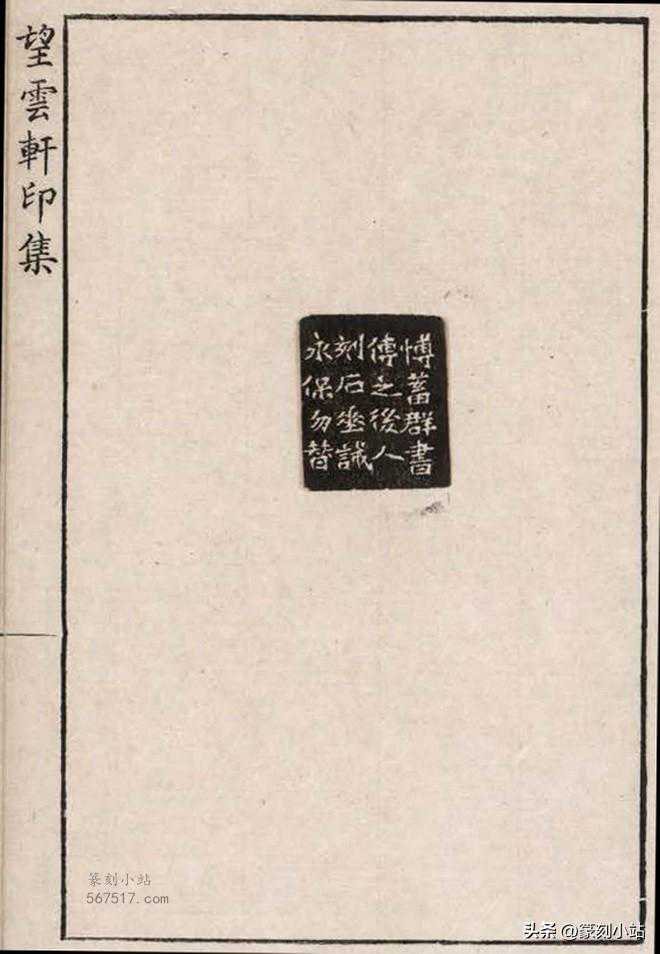 望雲軒印集
博蓄群書
傳之後人
刻石垂誡
永保勿替
篆刻小站
567517.com
头条 @篆刻小站